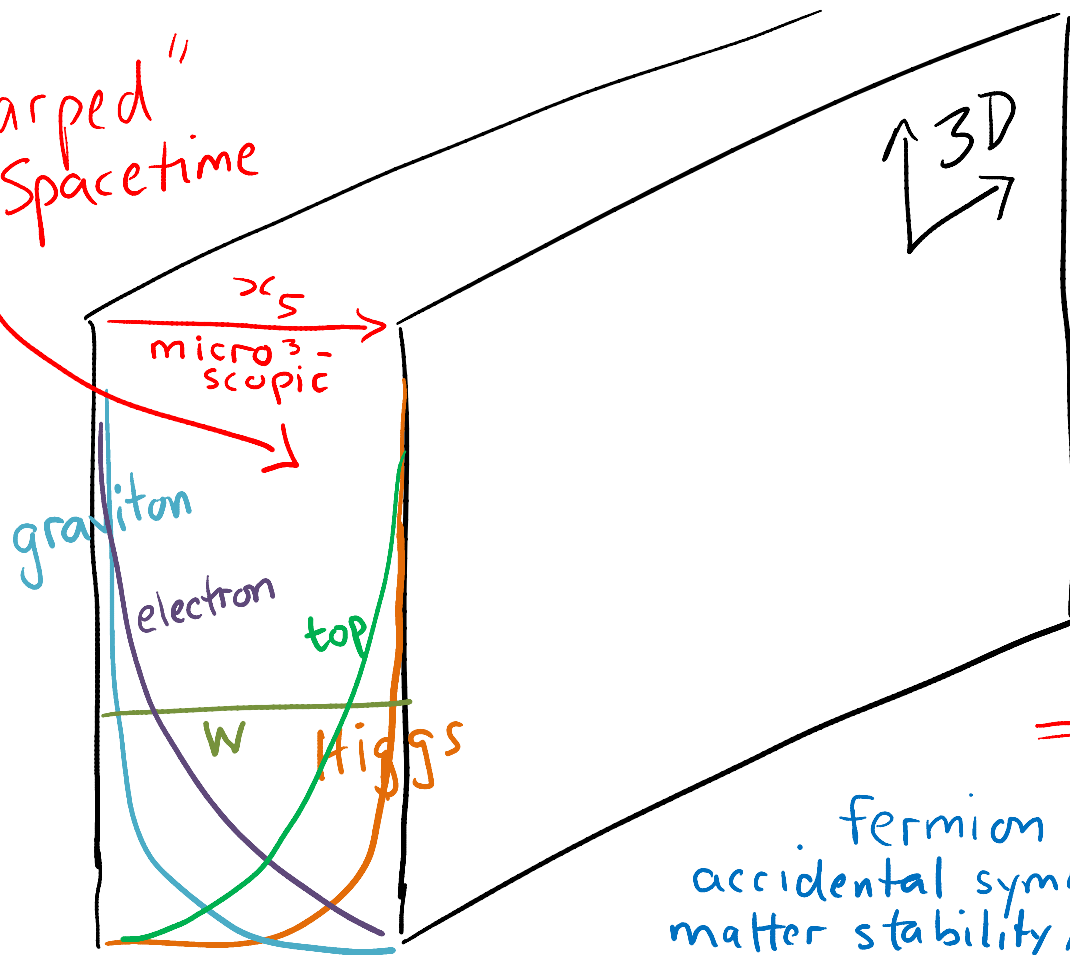 arped"
Spacetime
3D
x5
micro3-
scopic
graviton
electron
top
W
Higgs
=
fermion
accidental sym
matter stability,